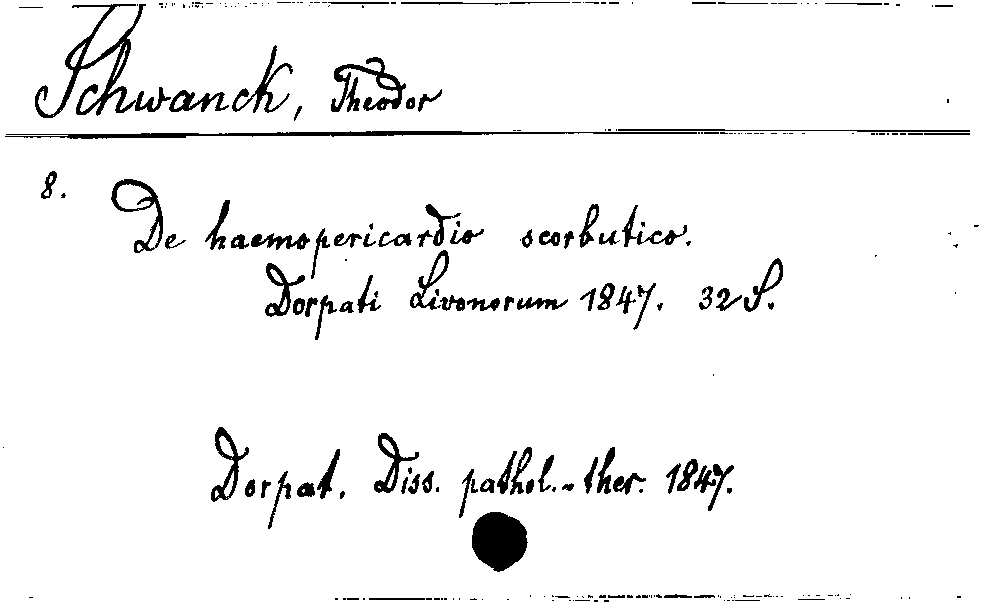 Schwanck, Theodor
8. De haemopericardio scorbutico.
Dorpati Livonorum 1847. 32 S.
Dorpat. Diss. pathol.-ther. 1847.